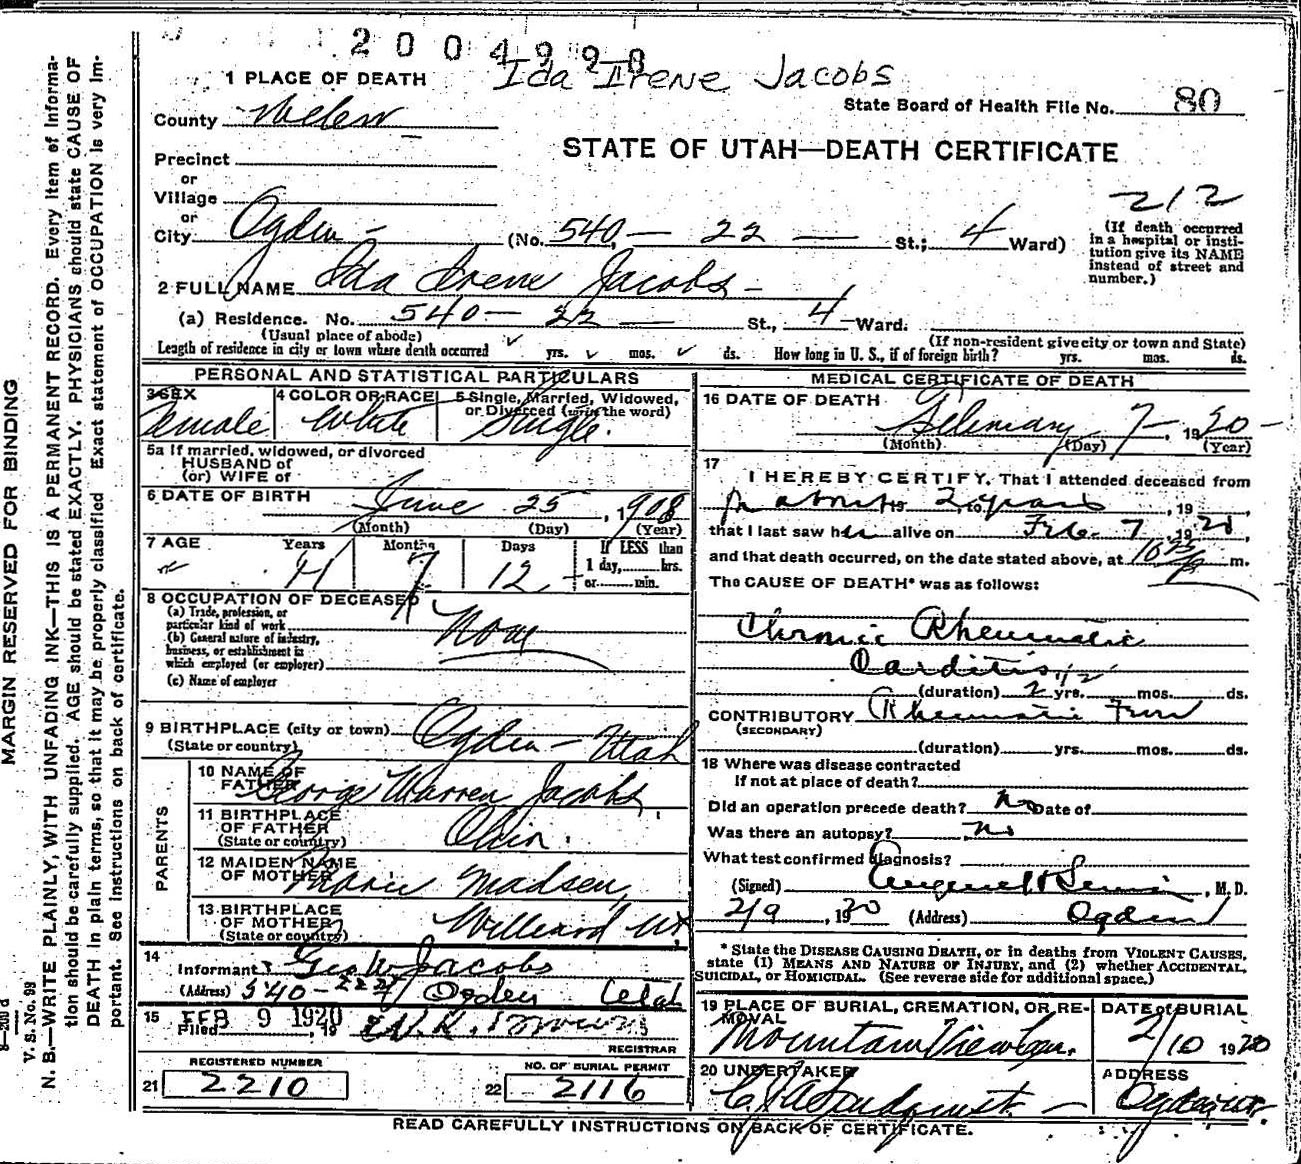 2004998
Ida Irene Jacobs
1 PLACE OF DEATH
State Board of Health File No. 80
County Weber
STATE OF UTAH—DEATH CERTIFICATE
Precinct
or
Village
or
City Ogden - (No. 540 — 22 — St.; 4 Ward)
212
(If death occurred in a hospital or institution give its NAME instead of street and number.)
2 FULL NAME Ida Irene Jacobs -
(a) Residence. No. 540 — 22 — St., 4 Ward.
(Usual place of abode) (If non-resident give city or town and State)
Length of residence in city or town where death occurred yrs. mos. ds. How long in U. S., if of foreign birth? yrs. mos. ds.
PERSONAL AND STATISTICAL PARTICULARS
3 SEX Female
4 COLOR OR RACE White
5 Single, Married, Widowed, or Divorced (write the word) Single.
5a If married, widowed, or divorced
HUSBAND of
(or) WIFE of
6 DATE OF BIRTH June 25, 1908
(Month) (Day) (Year)
7 AGE Years 11 Months 7 Days 12
If LESS than
1 day, hrs.
or min.
8 OCCUPATION OF DECEASED
(a) Trade, profession, or
particular kind of work None
(b) General nature of industry,
business, or establishment in
which employed (or employer)
(c) Name of employer
9 BIRTHPLACE (city or town) Ogden - Utah
(State or country)
PARENTS
10 NAME OF FATHER George Warren Jacobs
11 BIRTHPLACE OF FATHER Ohio.
(State or country)
12 MAIDEN NAME OF MOTHER Marie Madsen,
13 BIRTHPLACE OF MOTHER Willard Ut,
(State or country)
14
Informant Geo W Jacobs
(Address) 540 - 22nd Ogden Utah
15 Filed FEB 9 1920, 19
REGISTRAR
REGISTERED NUMBER
21 2210
NO. OF BURIAL PERMIT
22 2116
MEDICAL CERTIFICATE OF DEATH
16 DATE OF DEATH February 7 -, 1920 -
(Month) (Day) (Year)
17
I HEREBY CERTIFY, That I attended deceased from
for about 2 years, 19
that I last saw her alive on Feb. 7, 1920,
and that death occurred, on the date stated above, at m.
The CAUSE OF DEATH* was as follows:
Chronic Rheumatic
Carditis
(duration) 2 yrs. mos. ds.
CONTRIBUTORY Rheumatic Fever
(SECONDARY)
(duration) yrs. mos. ds.
18 Where was disease contracted
If not at place of death?
Did an operation precede death? No Date of
Was there an autopsy? No
What test confirmed diagnosis?
(Signed) , M. D.
2/9, 1920 (Address) Ogden
* State the DISEASE CAUSING DEATH, or in deaths from VIOLENT CAUSES,
state (1) MEANS AND NATURE OF INJURY, and (2) whether ACCIDENTAL,
SUICIDAL, or HOMICIDAL. (See reverse side for additional space.)
19 PLACE OF BURIAL, CREMATION, OR REMOVAL Mountain View Cem.
DATE of BURIAL 2/10 1920
20 UNDERTAKER Lindquist
ADDRESS Ogden Ut.
READ CAREFULLY INSTRUCTIONS ON BACK OF CERTIFICATE.
MARGIN RESERVED FOR BINDING
V. S. No. 98
N. B.—WRITE PLAINLY, WITH UNFADING INK—THIS IS A PERMANENT RECORD. Every item of Informa-
tion should be carefully supplied. AGE should be stated EXACTLY. PHYSICIANS should state CAUSE OF
DEATH in plain terms, so that it may be properly classified. Exact statement of OCCUPATION is very Im-
portant. See instructions on back of certificate.